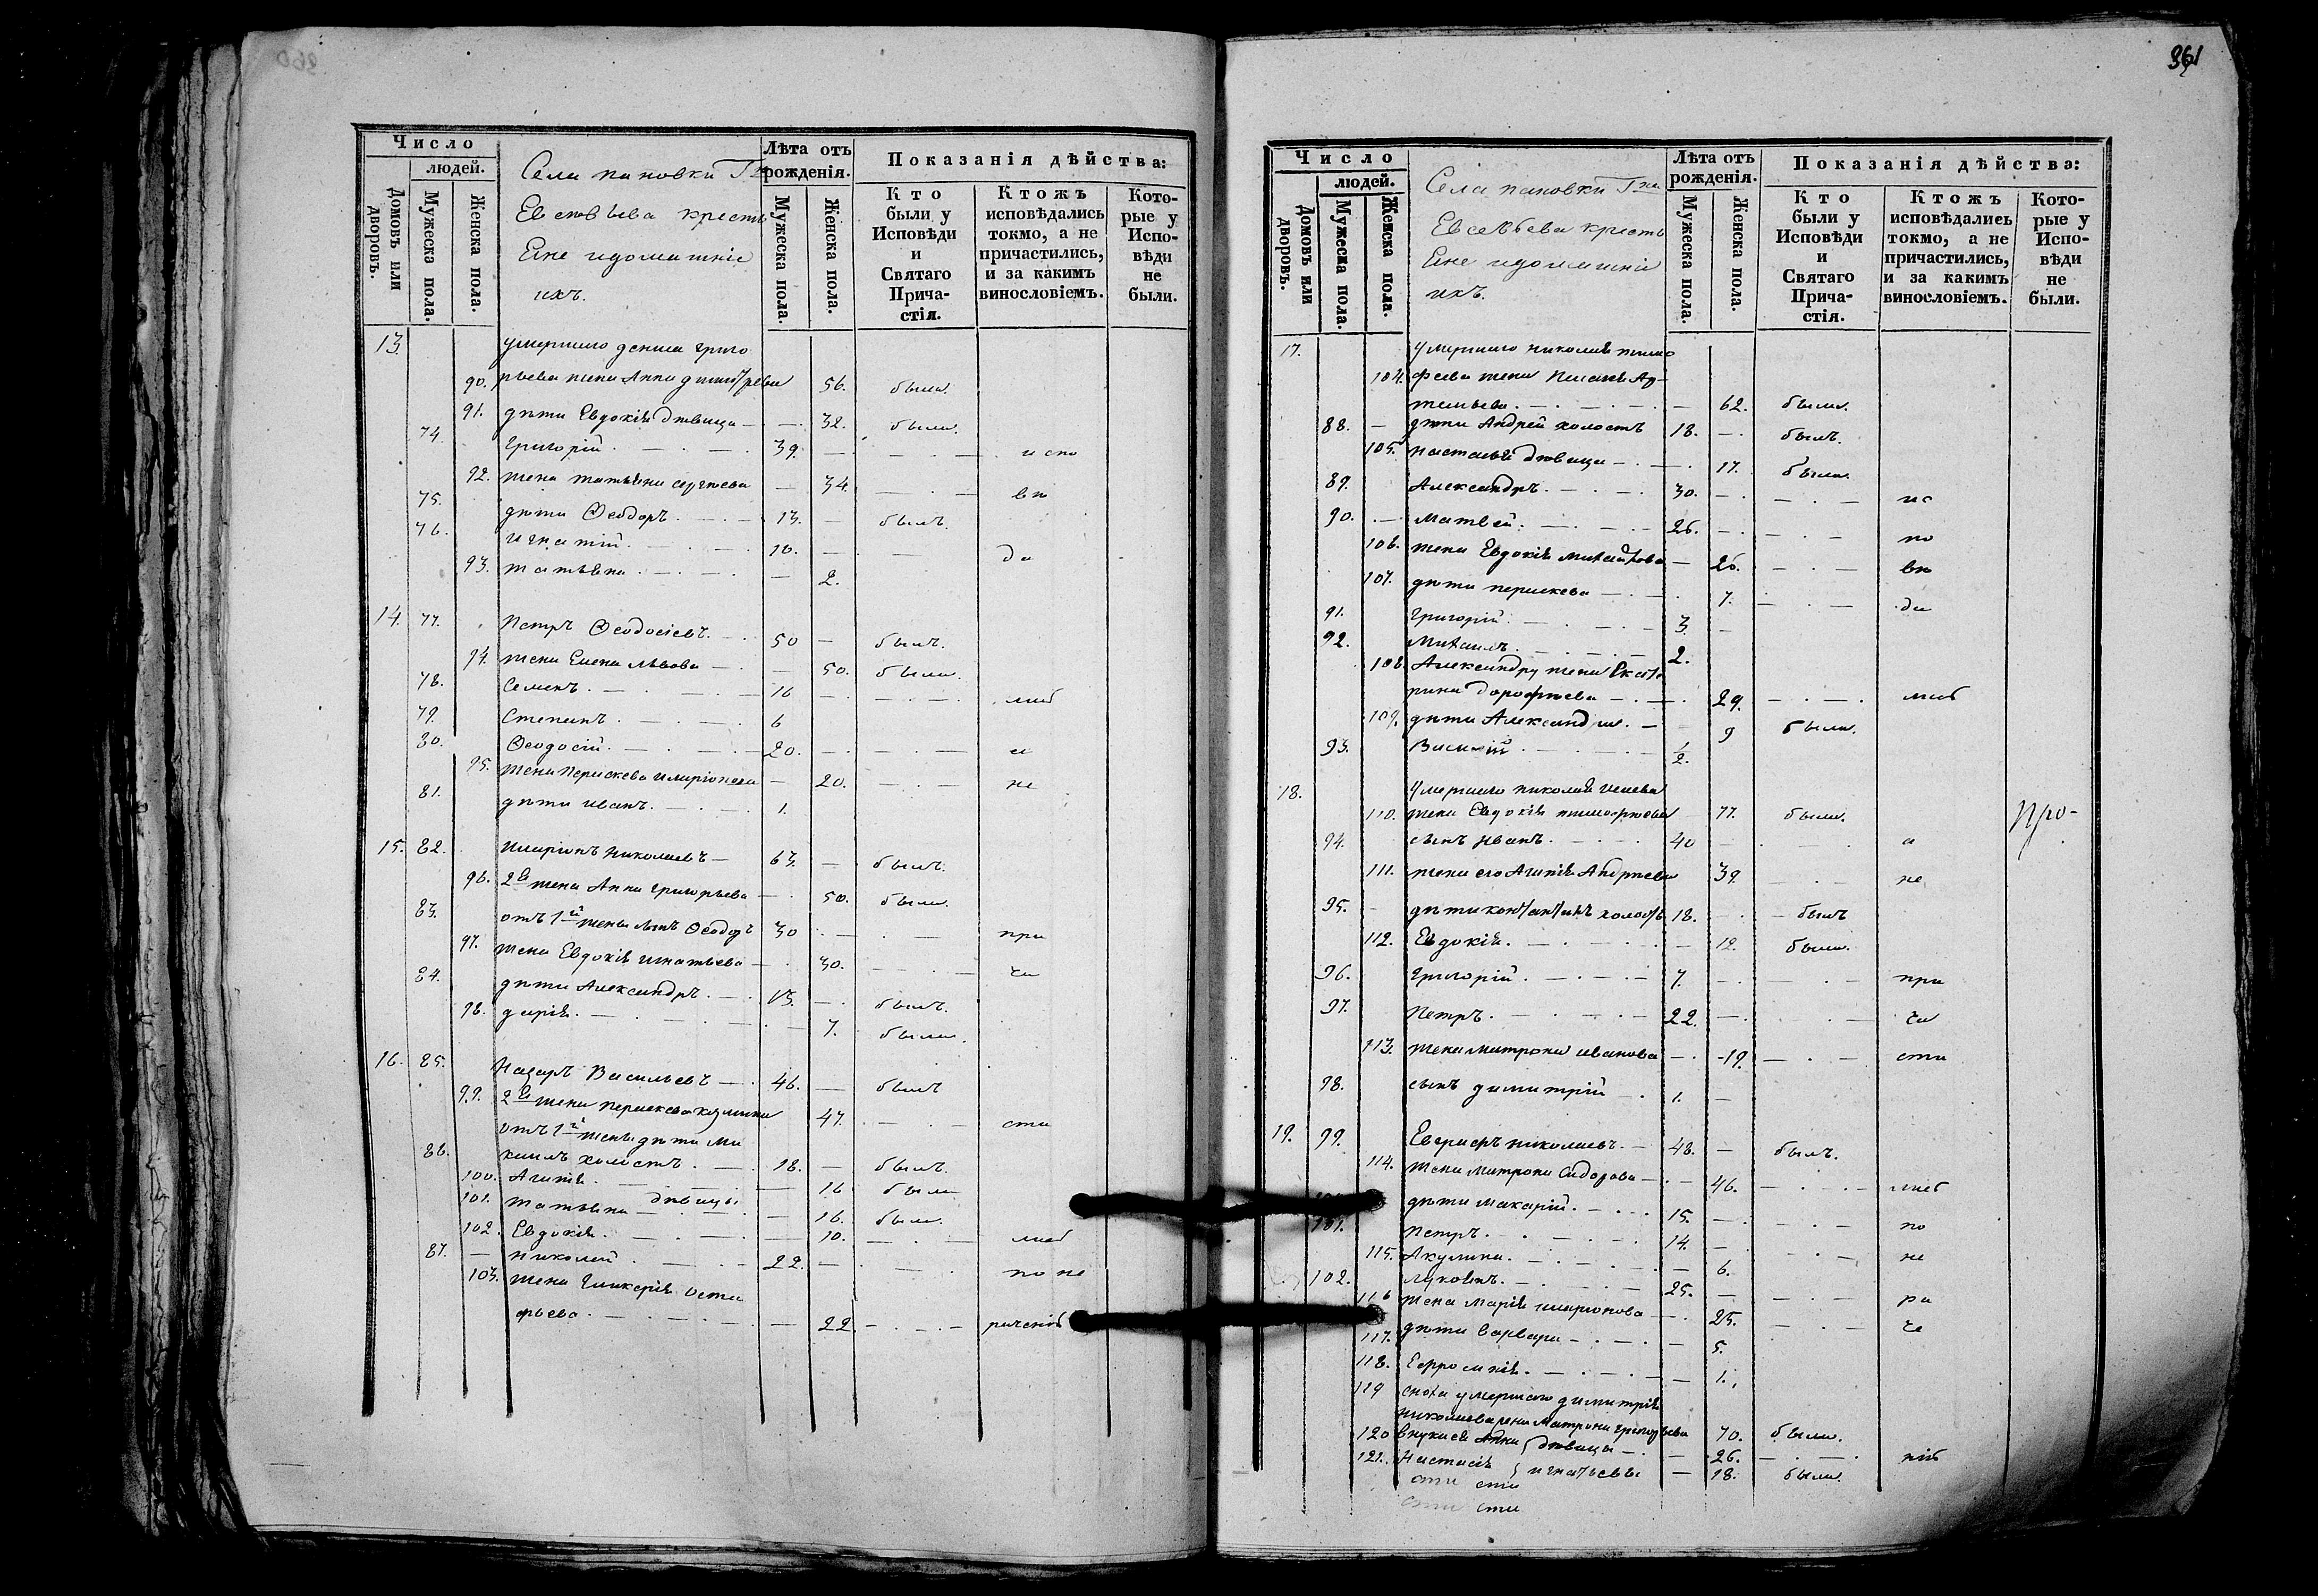 Число
людей.
Домовъ или дворовъ.
Мужеска пола.
Женска пола.
Села пановки Г на
крестья
Ене идомашніе
ихъ.
Лѣта отъ рожденія.
Мужеска пола.
Женска пола.
Показанія дѣйства:
Кто были у Исповѣди и Святаго Причастія.
Ктожъ исповѣдались токмо, а не причастились, и за какимъ винословіемъ.
Которые у Исповѣди не были.
13. умершаго дениса григо
90. рьева жена Анна димитрева 56. была.
91. дѣти Евдокія дѣвица — — 32. была.
74. Григорій . — . — . 39. — — . — испо
92. жена татьяна сергѣева — 34. — . — вѣ
75. дѣти Ѳеодоръ . — . — 13. — былъ.
76. игнатій . — . — . 10. — — да
93. татьяна . — . — . — 2.
14. 77. Петръ Ѳеодосіевъ . — . 50 — былъ.
94. жена Елена львова — . — 50. была.
78. Семенъ . — . — . — 16 — . — . — . либ
79. Степанъ . — . — . 6
80. Ѳеодосій . — . — . — 20. — . — . — и
95. жена Параскева иларіонова — 20. — . — не
81. дѣти иванъ . — . — . 1.
15. 82. Иларіонъ николаевъ — 63. — былъ.
96. 2я жена Анна григорьева — . 50. была.
83. отъ 1й жены сынъ Ѳеодоръ 30 . — . — при
97. жена Евдокія игнатьева — . 30. — . — ча
84. дѣти Александръ . — . 13. — . былъ.
98. дарія . — . — . — . — 7. была.
16. 85. Назаръ Васильевъ — . 46. — былъ
99. 2я жена параскева козмина 47. . — . — сти
отъ 1й жены дѣти Ми
86. хаилъ холостъ . — . 18. — былъ.
100. Агапія . — . — . — 16 была
101. татьяна дѣвицы — 16. была.
102. Евдокія . — . — . — 10. — . — либ
87. — николай . — . — 22. — . — . по не
103. жена Гликерія Оста
фьева . — . — . — . — 22. — . — . — раченію
361
Число
людей.
Домовъ или дворовъ.
Мужеска пола.
Женска пола.
Села пановки Г на
Евсевьева кресть
Ене идомашніе
ихъ.
Лѣта отъ рожденія.
Мужеска пола.
Женска пола.
Показанія дѣйства:
Кто были у Исповѣди и Святаго Причастія.
Ктожъ исповѣдались токмо, а не причастились, и за какимъ винословіемъ.
Которые у Исповѣди не были.
17. Умершаго николая тимо
104. феева жена Ар-
темьева . — . — . — . — 62. была.
88. — дѣти Андрей холостъ 18. — . былъ.
105. настасья дѣвица — . — . 17. была.
89. Александръ . — . — . 30. — . — . — ис
90. . — Матвей . — . — . — 26. — . — . — по
106. жена Евдокія михайлова — 26. — . — вѣ
107. дѣти параскева — . — . 7. — . — да
91. Григорій . — . — . — 3. —
92. Михаилъ . — . — . 2.
108. Александру жена Екате
рина дорофѣева — . — . 29. — . — . либ
109. дѣти Александра . — 9 была.
93. Василій . — . — . — 1/2.
18. Умершаго николая исаева
110. жена Евдокія тимофѣева 77. была. Про-
94. сынъ иванъ . — . — . 40 — . — . и
111. жена его Агапія Андреева 39. — . — не
95. — дѣти константинъ холостъ 18. — . — былъ
112. Евдокія . — . — . — . — 12. была.
96. Григорій . — . — . — 7. — . — . — при
97. Петръ . — . — . — 22. — . — . — ча
113. жена матрона иванова — . 19. — . — сти
98. сынъ димитрій — . 1. —
19. 99. Евграфъ николаевъ . — 48. — былъ.
114. жена матрона Сидорова — . — 46. — . — . — либ
дѣти макарій . — . — . 15. — . — . — по
101. Петръ . — . — . — . 14. — . — . — не
115. Акулина . — . — . — . — 6.
102. луковъ . — . — . — 25. — — . — . ра
116 жена марія иларіонова — . 25. — . — че
117. дѣти варвара — . — . — 5.
118. Ефросинія . — . — . — 1.
119 сноха умершаго димитрія
николаева жена Матрона григорьева 70. была.
120 внуки ея Анна } дѣвицы — . — 26. — . — . нію
121. Настасія } игнатьевы — 18. была.
сти сти
сти сти